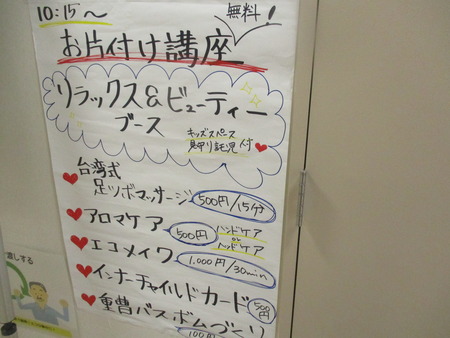 10:15～
無料！
お片付け講座
リラックス&ビューティー
ブース
キッズスペース
見守り託児付
台湾式
足ツボマッサージ 500円/15分
アロマケア 500円 ハンドケア
or
ヘッドケア
エコメイワ 1,000円/30min
インナーチャイルドカード 500円
重曹バスボムづくり
100円
渡しする